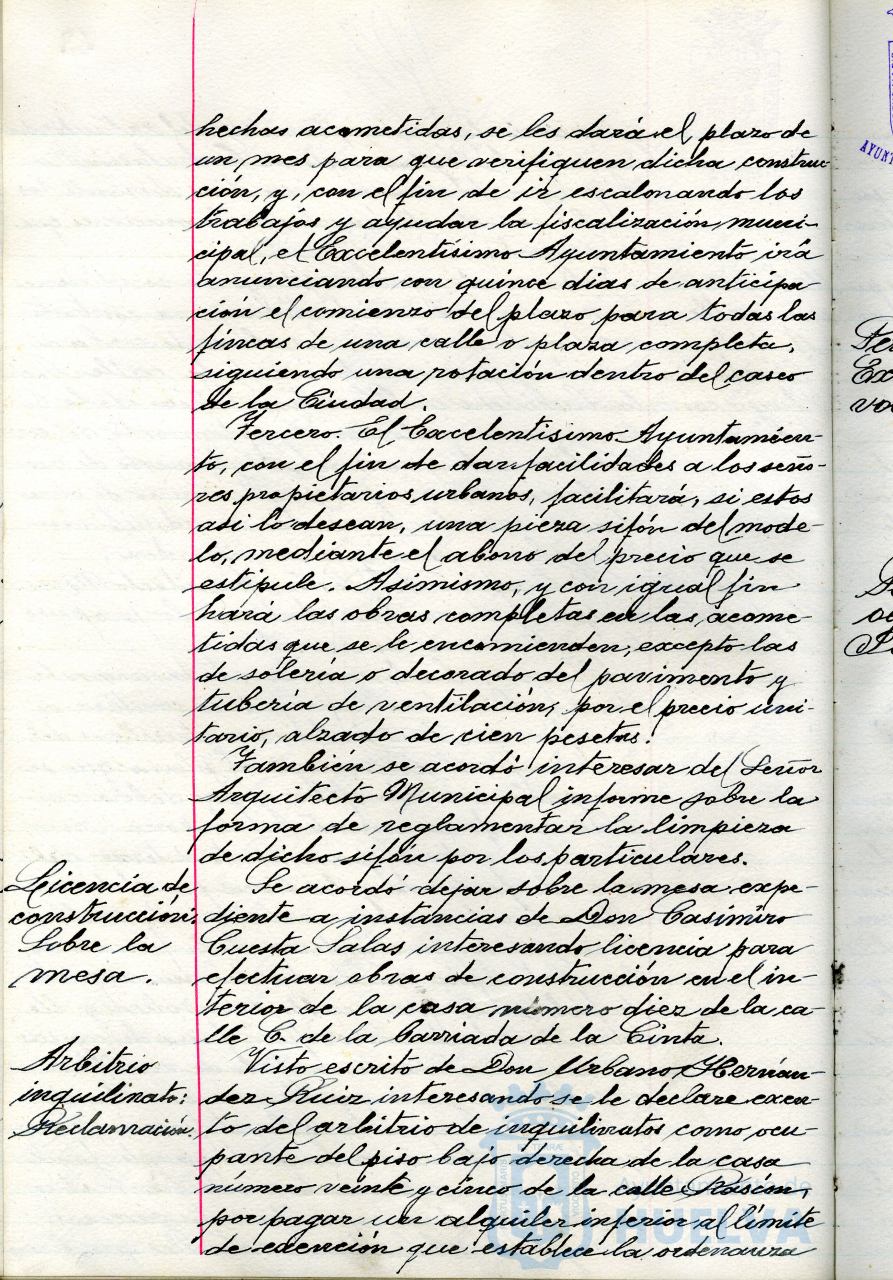 hechas acometidas, se les dará el plazo de
un mes para que verifiquen dicha construc-
ción, y, con el fin de ir escalonando los
trabajos y ayudar la fiscalización muni-
cipal, el Excelentísimo Ayuntamiento irá
anunciando con quince dias de anticipa-
ción el comienzo del plazo para todas las
fincas de una calle o plaza completa,
siguiendo una rotación dentro del casco
de la Ciudad.
Tercero. El Excelentisimo Ayuntamien-
to, con el fin de dar facilidades a los seño-
res propietarios urbanos, facilitará, si estos
asi lo desean, una pieza sifón del mode-
lo, mediante el abono del precio que se
estipule. Asimismo, y con igual fin
hará las obras completas en las acome-
tidas que se le encomienden, excepto las
de solería o decorado del pavimento y
tubería de ventilación, por el precio uni-
tario, alzado de cien pesetas.
También se acordó interesar del Señor
Arquitecto Municipal informe sobre la
forma de reglamentar la limpieza
de dicho sifón por los particulares.
Licencia de
construcción:
Sobre la
mesa.
Se acordó dejar sobre la mesa expe-
diente a instancias de Don Casimiro
Cuesta Salas interesando licencia para
efectuar obras de construcción en el in-
terior de la casa número diez de la ca-
lle C. de la Barriada de la Cinta.
Arbitrio
inquilinato:
Reclamación.
Visto escrito de Don Urbano Hernán-
dez Ruiz interesando se le declare exen-
to del arbitrio de inquilinatos como ocu-
pante del piso bajo derecha de la casa
número veinte y cinco de la calle Rasión,
por pagar un alquiler inferior al límite
de exención que establece la ordenanza
Ayuntamiento de
HUELVA